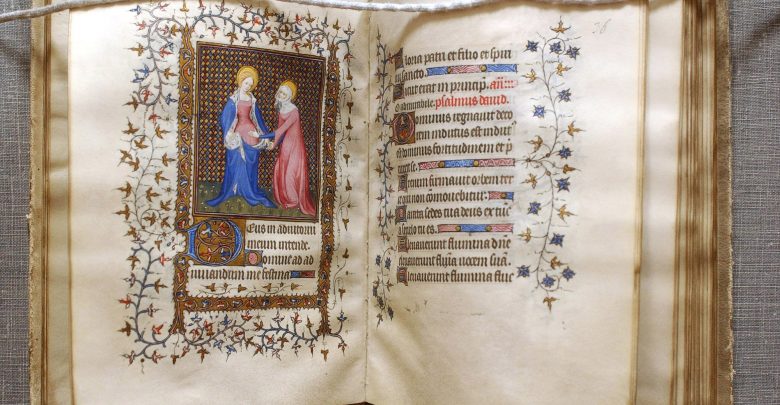 Deus in adiutoriu
meum intende
Domine ad ad
iuuandum me festina
38
Gloria patri et filio et spiri
sancto
Sicut erat in princip. añ
admirabile. psalmus dauid
Dominus regnauit deco
rem indutus est indut
dominus fortitudinem et p
Etenim firmauit orbem ter
re qui non commouebitur:
Parata sedes tua deus ex tuc
a seculo tu es.
Eleuauerunt flumina dñe
eleuauerunt flumina uocem suã.
Eleuauerunt flumina fluc